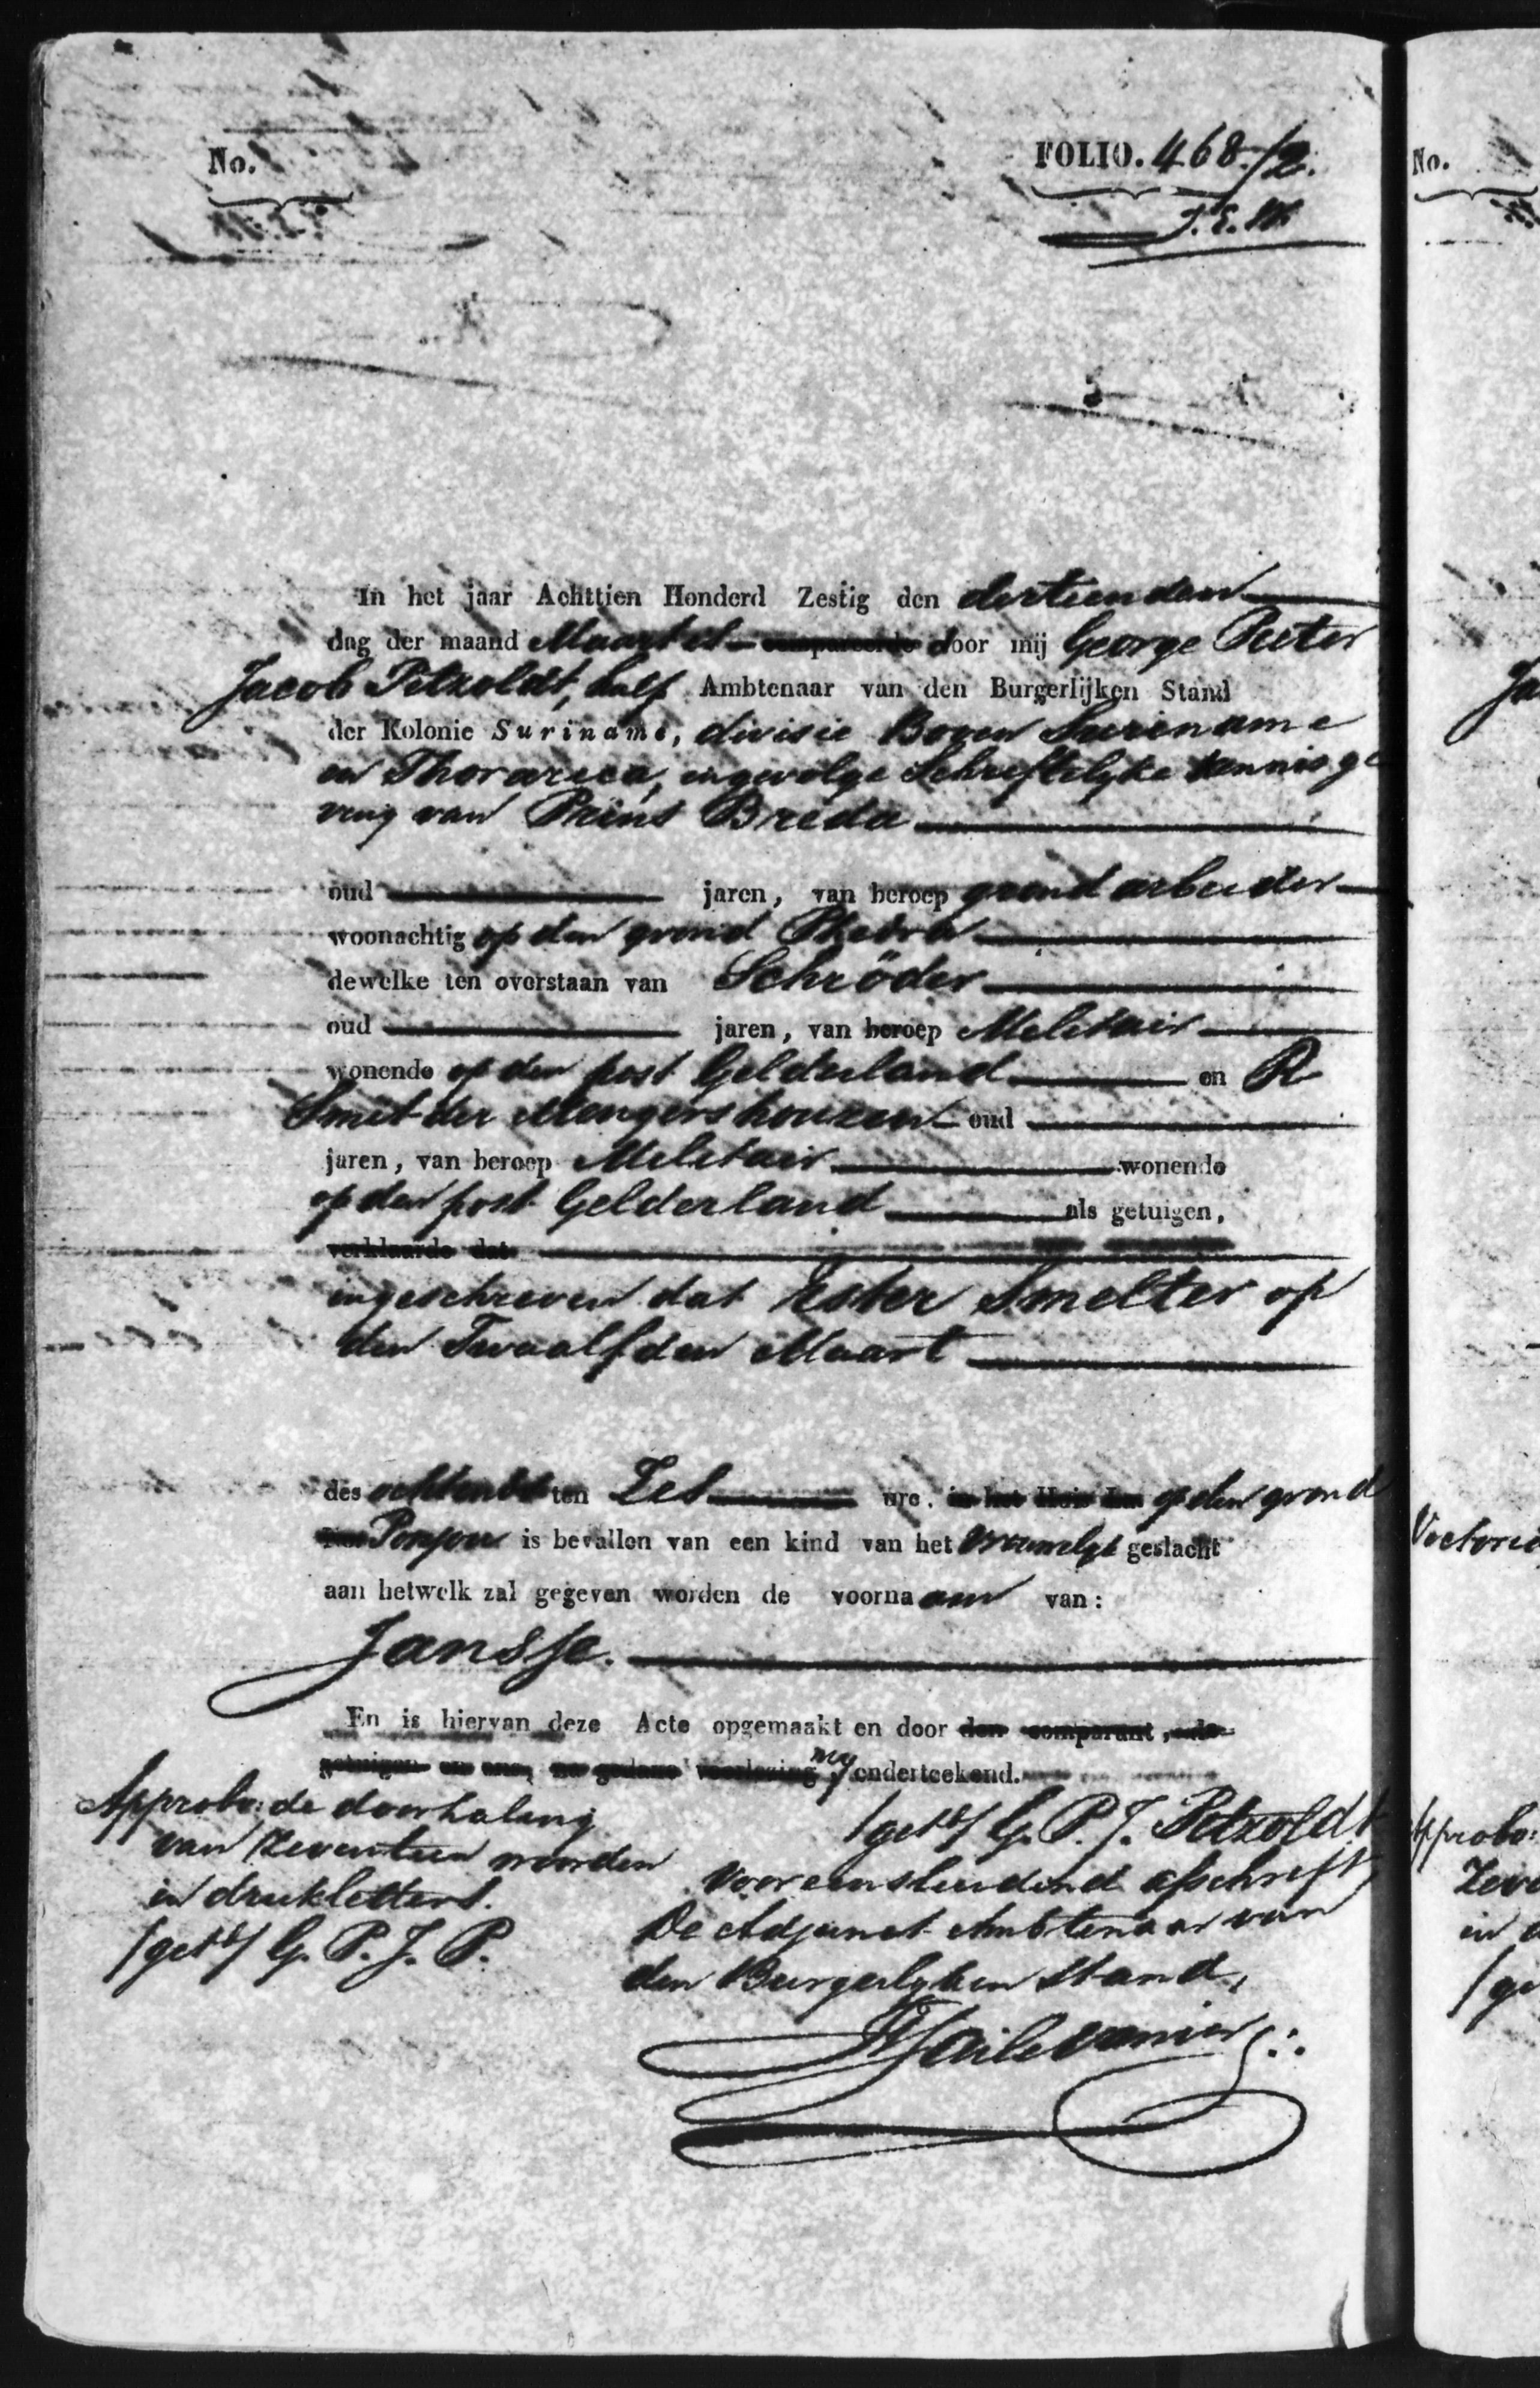 No. FOLIO. 468/2.
In het jaar Achttien Honderd Zestig den dertienden
dag der maand Maart is compareerde door mij George Pieter
Jacob Petzoldt, hulp Ambtenaar van den Burgerlijken Stand
der Kolonie Suriname, divisie Boven Suriname
en Thorarica, ingevolge Schriftelyke kennisge
ving van Prins Breda
oud jaren, van beroep grond arbeider
woonachtig op den grond Phedra
dewelke ten overstaan van Schröder
oud jaren, van beroep Melitair
wonende op den post Gelderland en R
Smit der Mengershouzen oud
jaren, van beroep Melitair wonende
op den post Gelderland als getuigen,
verklaarde dat
ingeschreven dat Ester Smelter op
den Twaalfden Maart
des ochtends ten Zes ure. in het Huis op den grond
Ponjou is bevallen van een kind van het vrouwelyk geslacht
aan hetwelk zal gegeven worden de voornaam van:
Jansje.
En is hiervan deze Acte opgemaakt en door den comparant, de
getuigen en ons, na gedane voorlezing my onderteekend.
Approbo: de doorhaling
van zeventien woorden
in drukletters.
/get^d/ G. P. J. P.
/get^d/ G. P. J. Petzoldt
Voor eensluidend afschrift,
De Adjunct Ambtenaar van
den Burgerlyken Stand,
No.
Approbo:
in